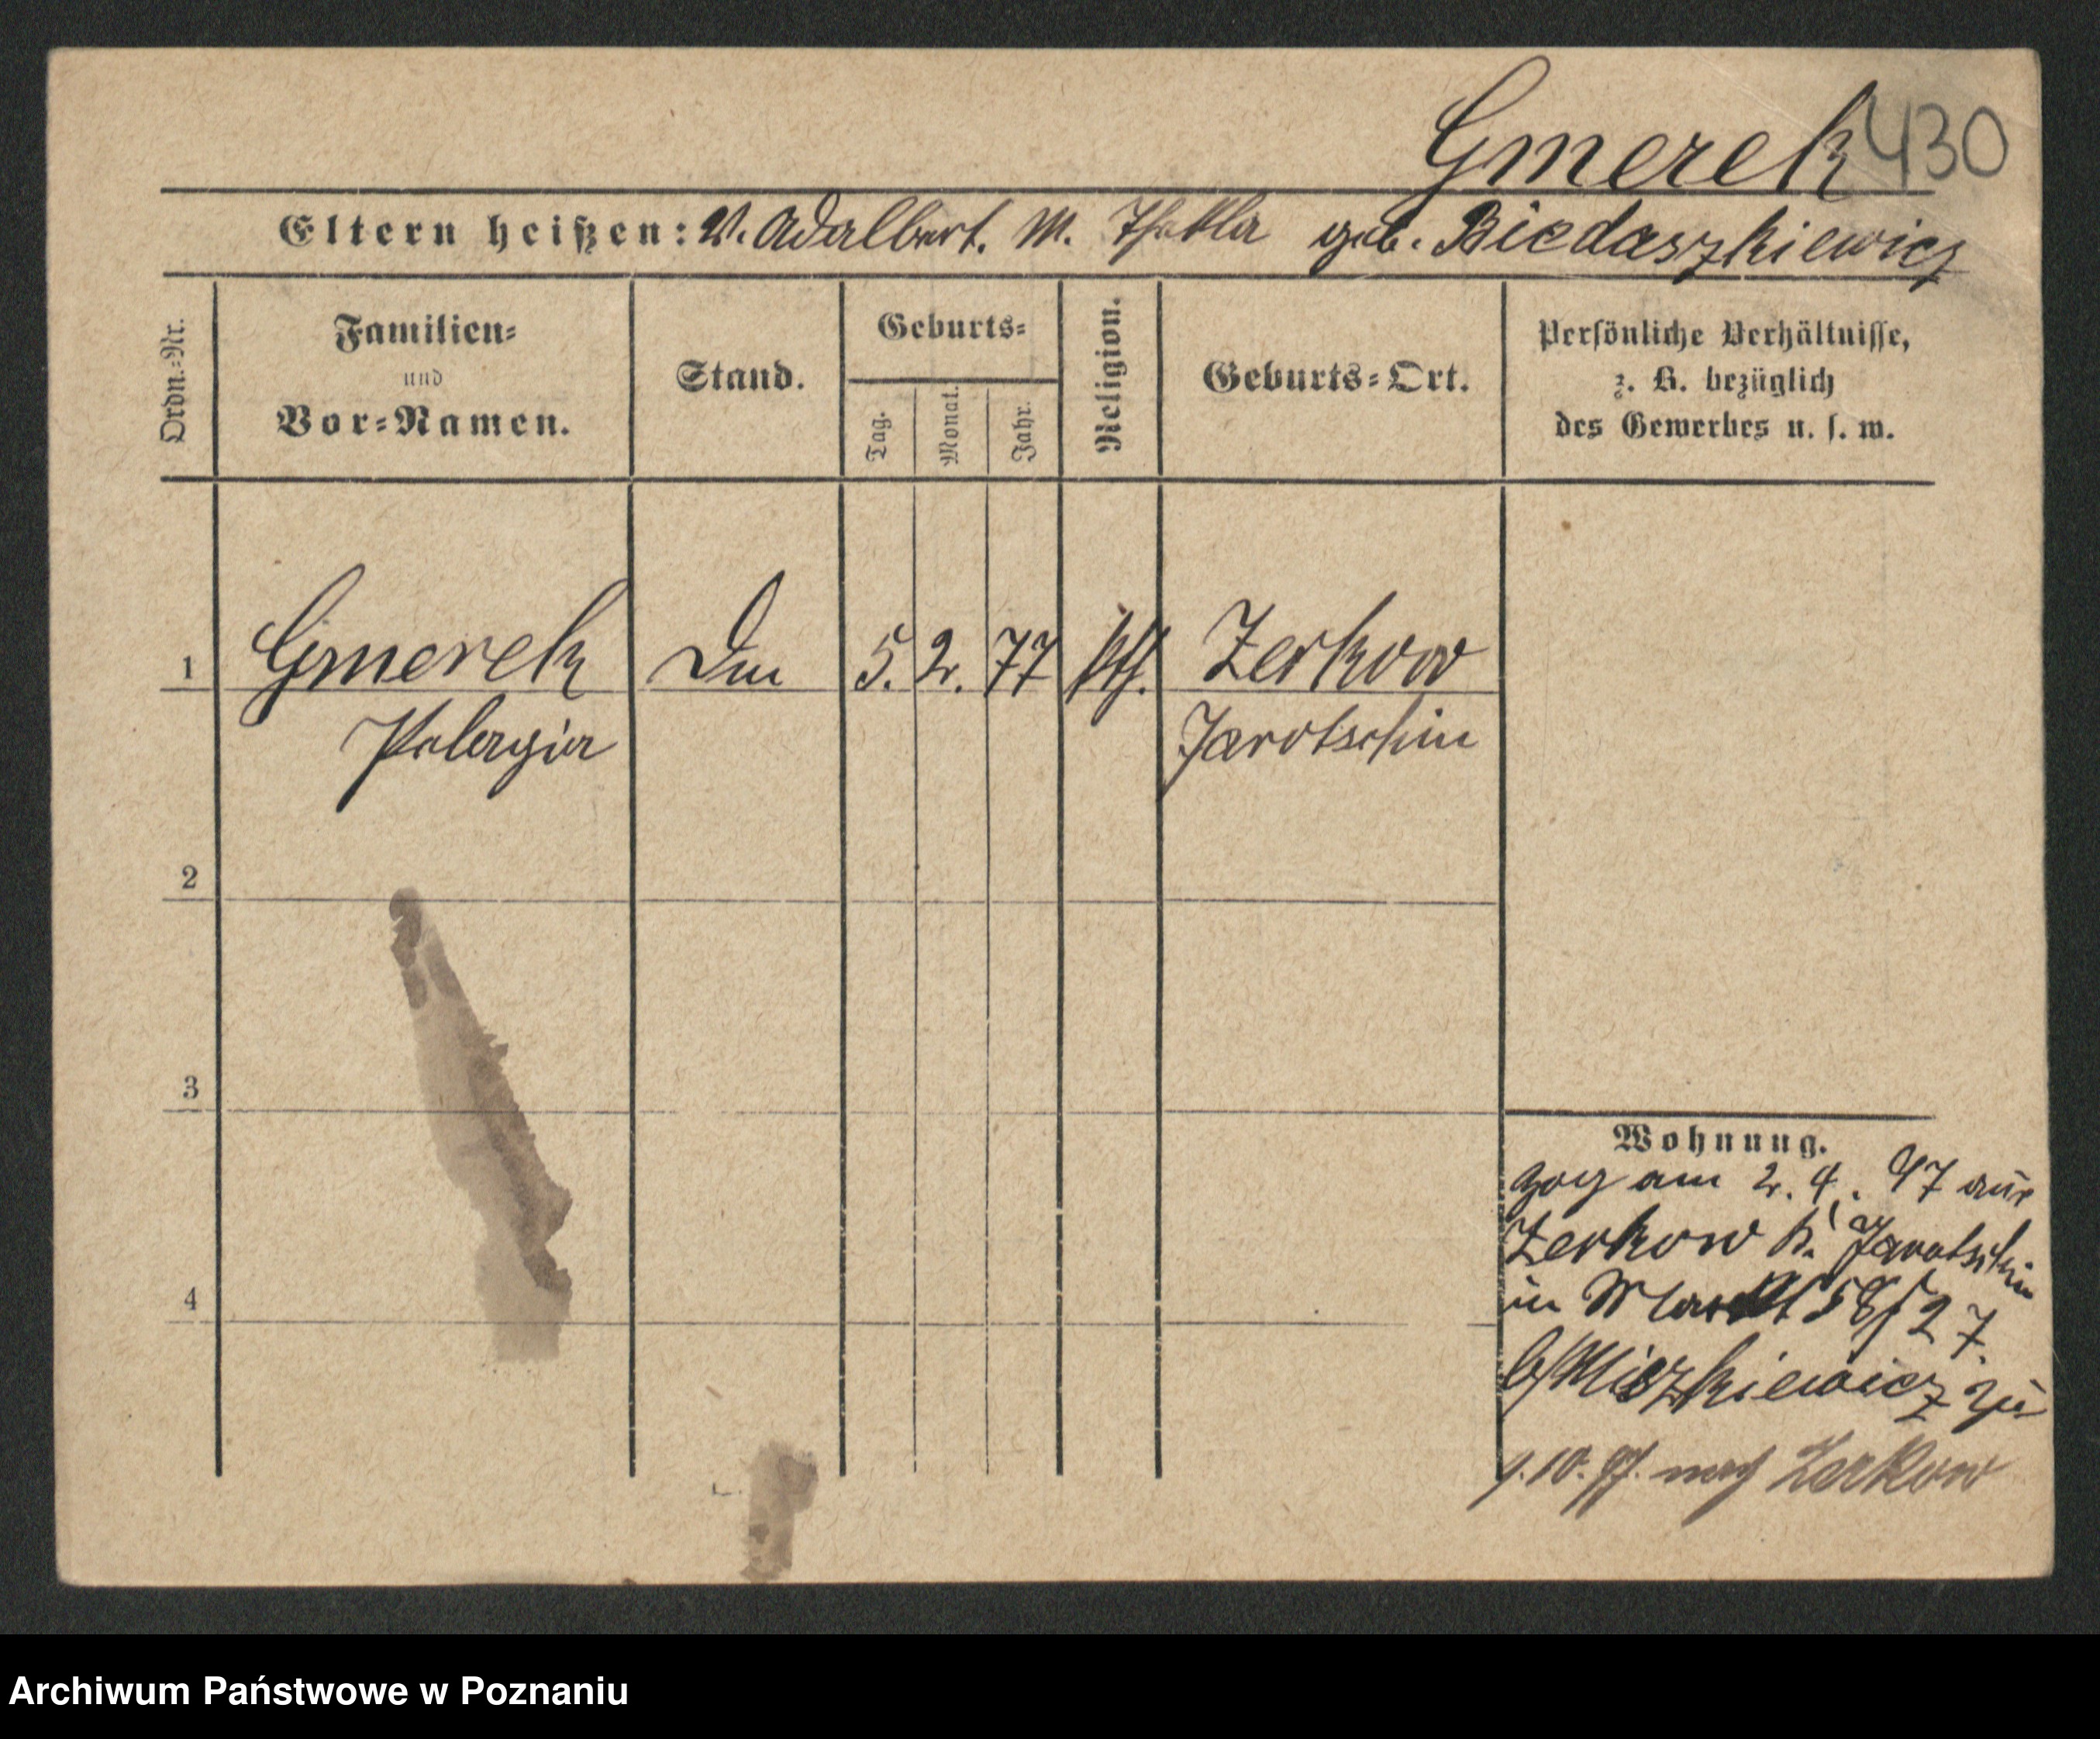 Gmerek 430
Eltern heißen: V. Adalbert. M. Thekla geb. Biedaszkiewicz
Ordn.-Nr.
Familien-
und
Vor-Namen.
Stand.
Geburts-
Tag.
Monat.
Jahr.
Religion.
Geburts-Ort.
Persönliche Verhältnisse,
z. B. bezüglich
des Gewerbes u. s. w.
1 Gmerek 5. 2. 77 kth. Zerkow
Pelagia Jarotschin
2
3
4
Wohnung.
zog am 2. 4. 97 aus
Zerkow K. Jarotschin
in Markt 58/27.
b/Miszkiewicz zu
1.10.97. nach Zerkow
Archiwum Państwowe w Poznaniu